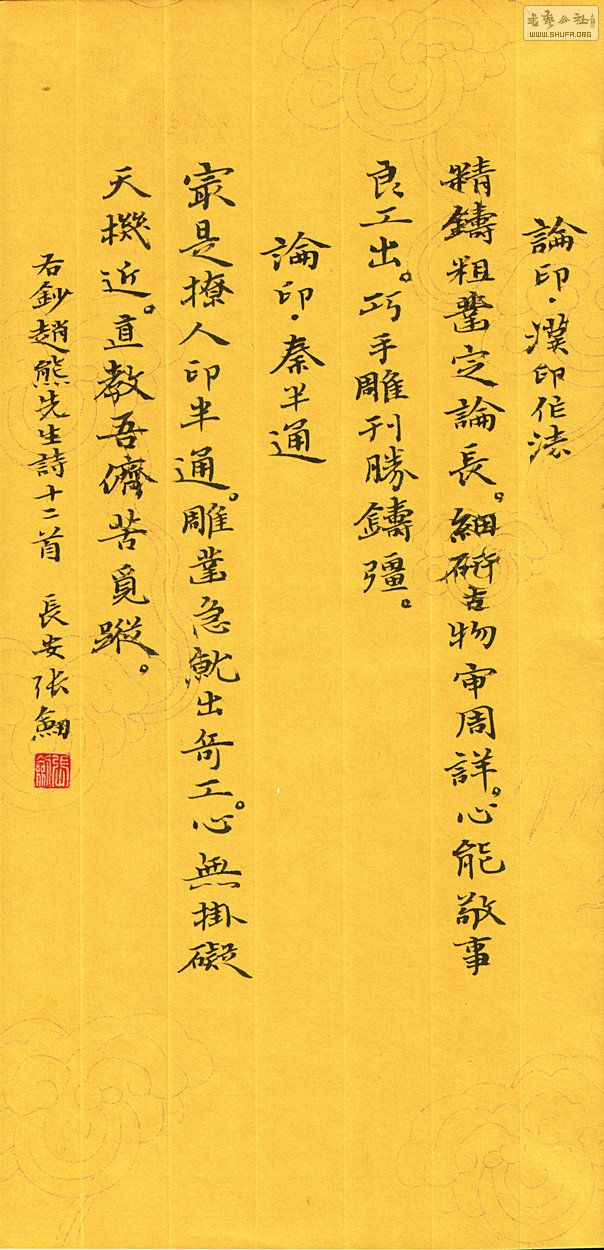 書藝公社
WWW.SHUFA.ORG
論印·漢印作法
精鑄粗鑿定論長。細研吉物審周詳。心能敬事
良工出。巧手雕刊勝鑄彊。
論印·秦半通
㝡是撩人印半通。雕鑿急就出奇工。心無掛礙
天機近。直教吾儕苦覓蹤。
右鈔趙熊先生詩十二首 長安張